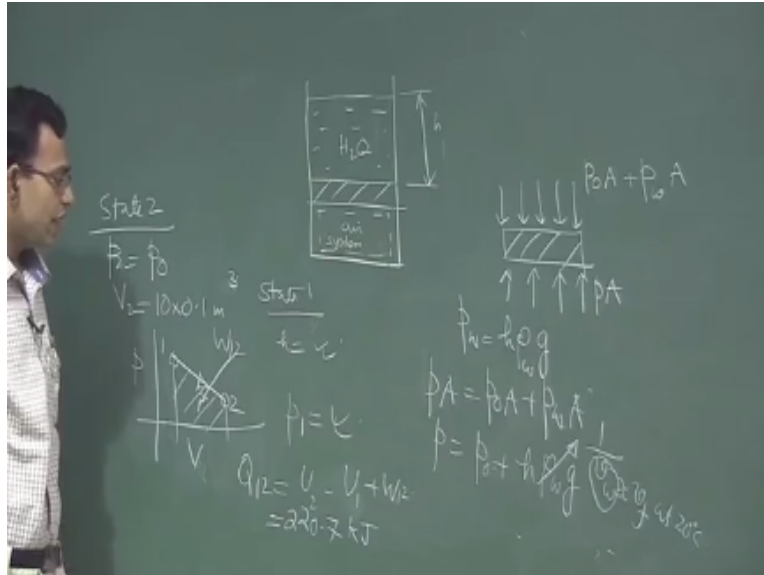 H₂O
h
air
system
p₀A + p_w A
pA
State 2
p₂ = p₀
V₂ = 10×0.1 m³
State 1
h = ✓
p
1
2
W₁₂
V
p₁ = ✓
Q₁₂ = U₂ - U₁ + W₁₂
= 220.7 kJ
p_w = hρ_w g
pA = p₀A + p_w A
p = p₀ + hρ_w g
1
at 20°C